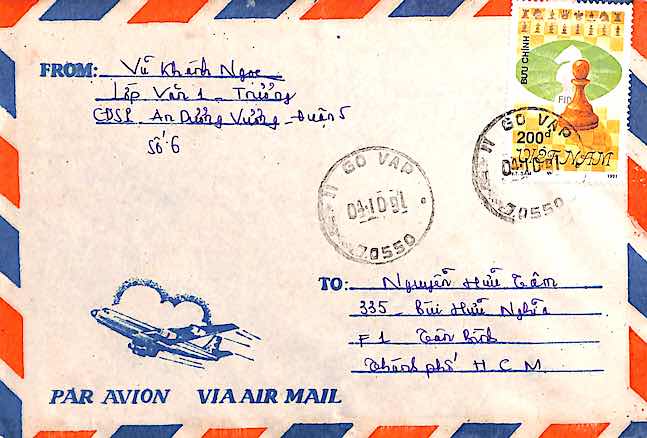 FROM: Vũ Khánh Ngọc
Lớp Văn 1 - Trường
CĐSP. An Dương Vương - Quận 5
Số 6
BƯU CHÍNH
FID
200đ
VIỆT NAM
1991
GO VAP
04.10.91
70550
GO VAP
04.10.91
70550
TO: Nguyễn Hữu Tâm
335 - Bùi Hữu Nghĩa
F1 Tân Bình
Thành phố H.C.M
PAR AVION VIA AIR MAIL